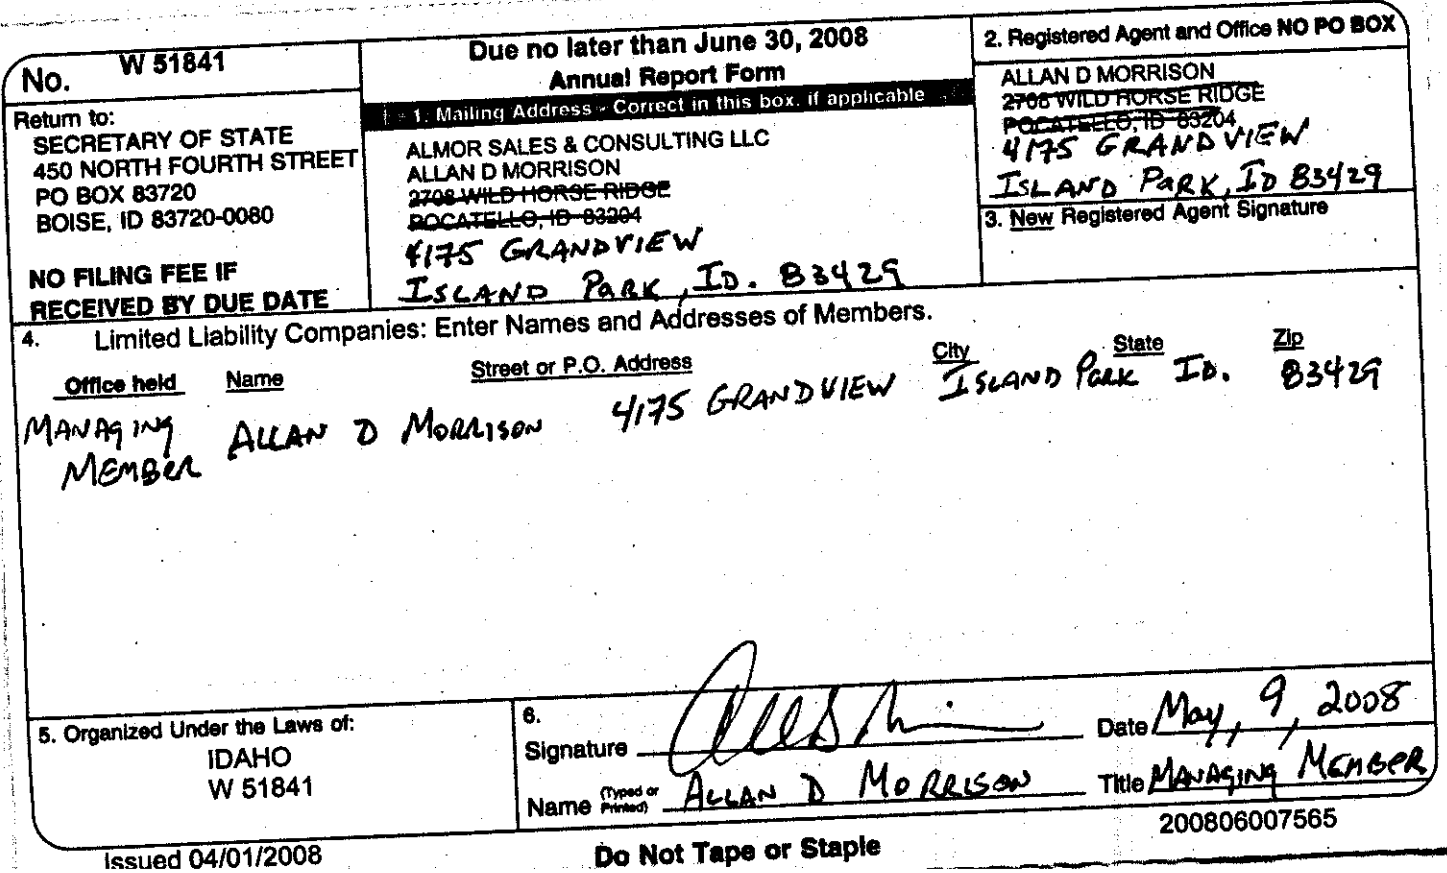 No. W 51841
Return to:
SECRETARY OF STATE
450 NORTH FOURTH STREET
PO BOX 83720
BOISE, ID 83720-0080
NO FILING FEE IF
RECEIVED BY DUE DATE
Due no later than June 30, 2008
Annual Report Form
1. Mailing Address - Correct in this box, if applicable
ALMOR SALES & CONSULTING LLC
ALLAN D MORRISON
2708 WILD HORSE RIDGE
POCATELLO, ID 83204
4175 GRANDVIEW
ISLAND PARK, ID. 83429
2. Registered Agent and Office NO PO BOX
ALLAN D MORRISON
2708 WILD HORSE RIDGE
POCATELLO, ID 83204
4175 GRANDVIEW
ISLAND PARK, ID 83429
3. New Registered Agent Signature
4. Limited Liability Companies: Enter Names and Addresses of Members.
Office held Name Street or P.O. Address City State Zip
MANAGING ALLAN D MORRISON 4175 GRANDVIEW ISLAND PARK ID. 83429
MEMBER
5. Organized Under the Laws of:
IDAHO
W 51841
6.
Signature Date May, 9, 2008
Name (Typed or Printed) ALLAN D MORRISON Title MANAGING MEMBER
Issued 04/01/2008
Do Not Tape or Staple
200806007565